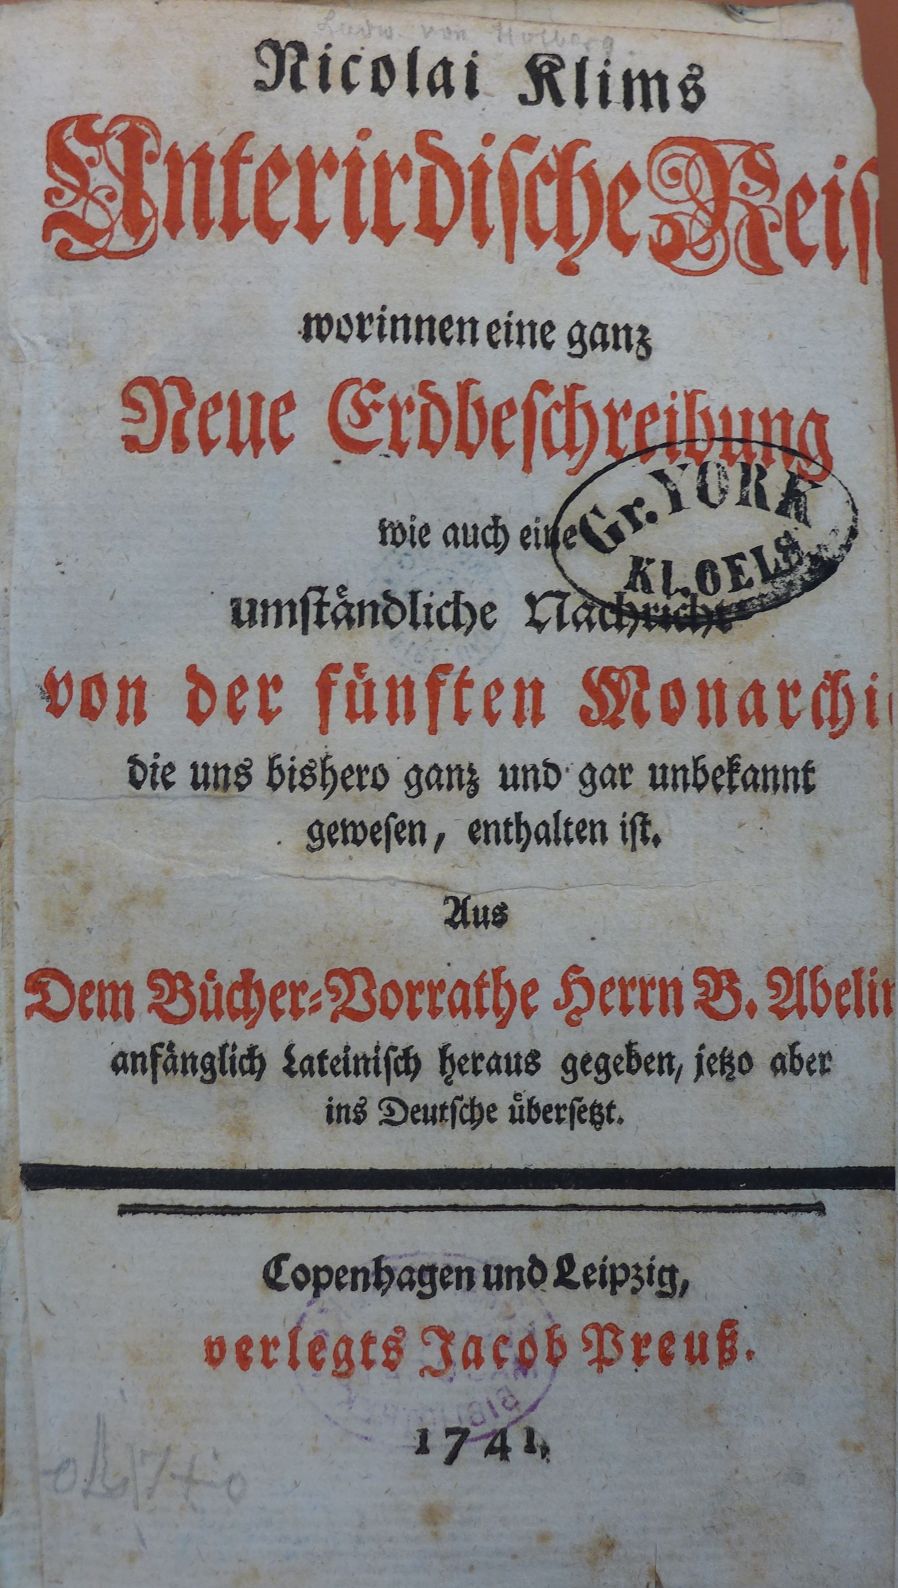 Ludw. von Holberg
Nicolai Klims
Unterirdische Reise
worinnen eine ganz
Neue Erdbeschreibung
wie auch eine
Gr. YORK
KL. OELS
umständliche Nachricht
von der fünften Monarchie
die uns bishero ganz und gar unbekannt
gewesen, enthalten ist.
Aus
Dem Bücher-Vorrathe Herrn B. Abelin
anfänglich Lateinisch heraus gegeben, jetzo aber
ins Deutsche übersetzt.
Copenhagen und Leipzig,
verlegts Jacob Preuß.
1741.